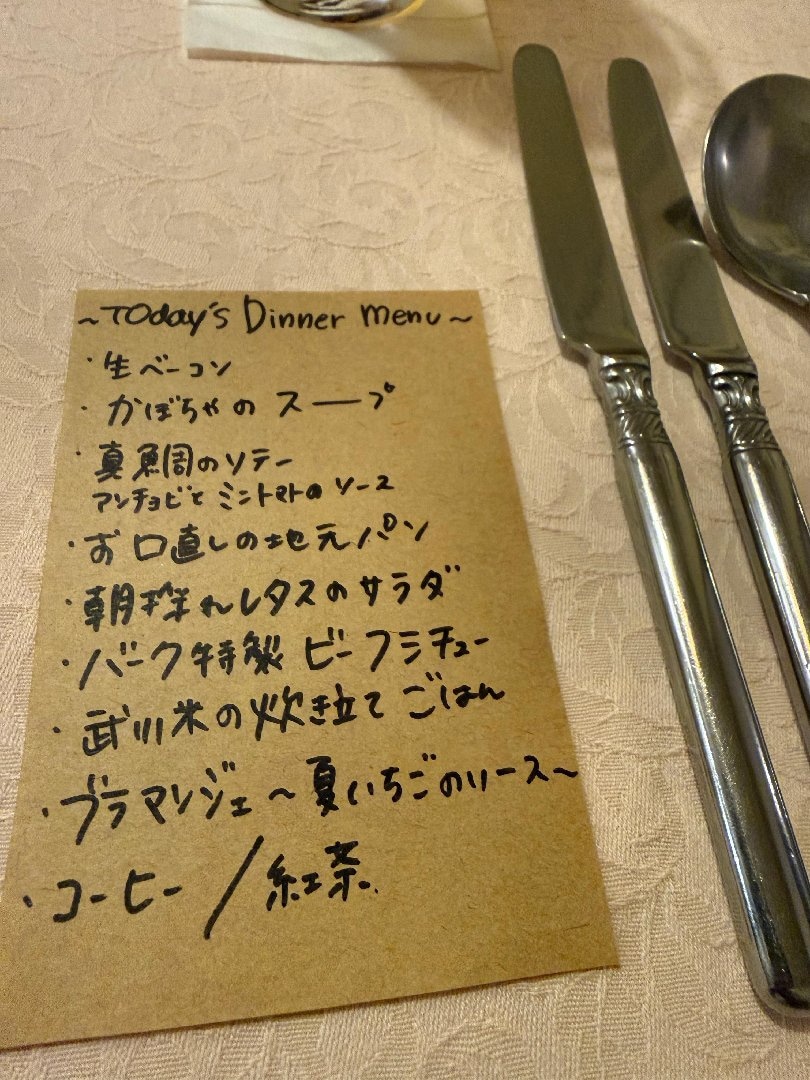 ~Today's Dinner Menu~
・生ベーコン
・かぼちゃの スープ
・真鯛のソテー
アンチョビと ミニトマトの ソース
・お口直しの地元パン
・朝採れレタスのサラダ
・バーク特製 ビーフシチュー
・武川米の炊き立て ごはん
・ブラマンジェ~夏いちごのソース~
・コーヒー/紅茶